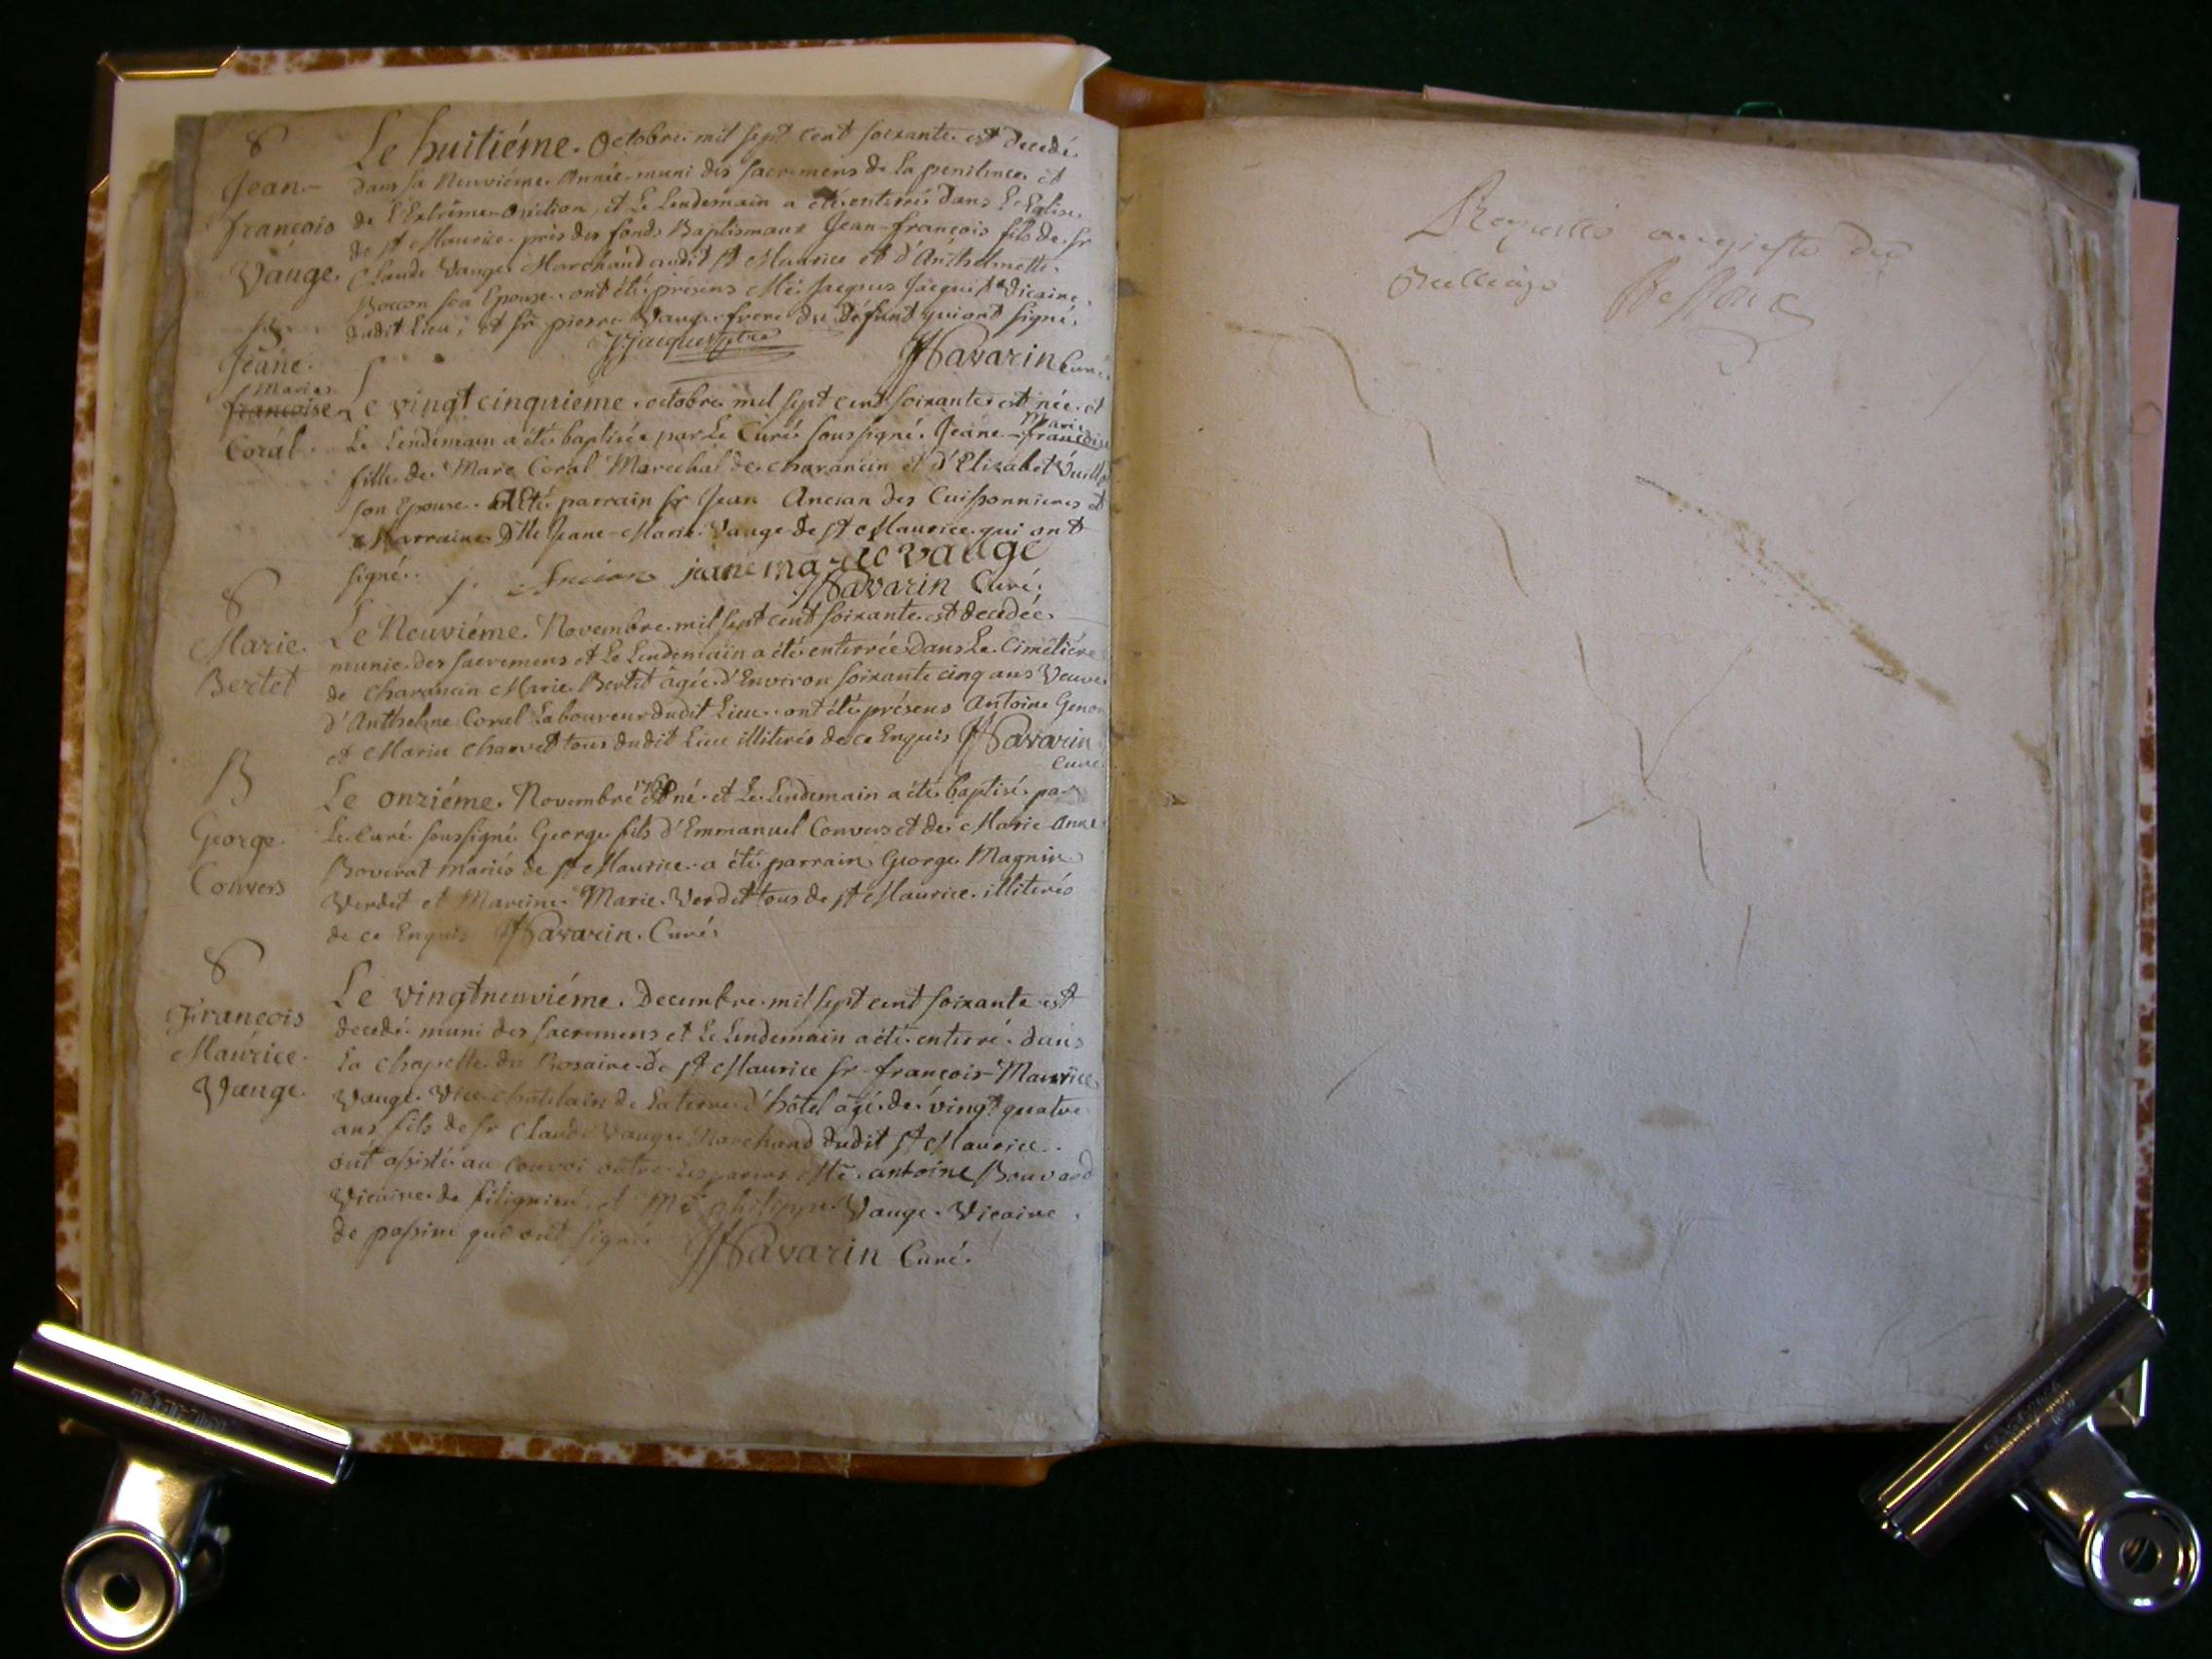 S
Jean-
françois
Vauge.
Le huitiéme. Octobre mil sept cent soixante est decedé
dans sa Neuviéme Année muni des sacremens de la penitence et
de l'Extrême-Onction, et Le Lendemain a été enterré dans L'Eglise
de st Maurice près des fonds Baptismaux Jean-françois fils de sr
Claude Vauge Marchand audit st Maurice et d'Anthelmette
son Epouse. ont été présens Me Jacques Jacquet Vicaire
dudit Lieu, et sr pierre Vauge frere du Défunt qui ont signé.
Navarin Curé
Jeane
Marie
françoise
Coral.
Le vingt cinquieme. octobre mil sept cent soixante est née et
Le Lendemain a été baptisée par Le Curé soussigné. Jeane-françoise Marie
fille de Marc Coral Marechal de charancin et d'Elizabet
son Epouse. a Eté parrain sr Jean Ancian des Cuissonnieres et
Marraine Dlle Jeane-Marie Vauge de st Maurice qui ont
signé. j. Ancian jeane marie vauge
Navarin Curé.
S
Marie
Bertet
Le Neuviéme. Novembre mil sept cent soixante est decedée
munie des sacremens et Le Lendemain a été enterrée dans Le Cimétiére
de charancin Marie Bertet âgée d'Environ soixante cinq ans Veuve
d'Anthelme Coral Laboureur dudit Lieu. ont été présens Antoine
et Marin charvet tous dudit Lieu illiterés de ce Enquis Navarin
Curé
B
George
Convers
Le onziéme. Novembre 1760 est né et Le Lendemain a été baptisé par
Le Curé soussigné George fils d'Emmanuel Convers et de Marie Anne
Boverat mariés de st Maurice a été parrain George Magnin
Verdet et Mareine Marie Verdet tous de st Maurice illiterés
de ce Enquis Navarin. Curé.
S
François
Maurice
Vauge.
Le vingtneuviéme. Decembre mil sept cent soixante est
decedé muni des sacremens et Le Lendemain a été enterré dans
La chapelle du Rosaire de st Maurice sr françois-Maurice
Vauge. Vice-châtelain de La terre d'hôtel âgé de vingt quatre
ans fils de sr Claude Vauge Marchand dudit st Maurice.
ont assisté au convoi outre Les parens Me. antoine Bouvard
Vicaire de et Me philippe Vauge. Vicaire
de passin qui ont signé Navarin Curé.